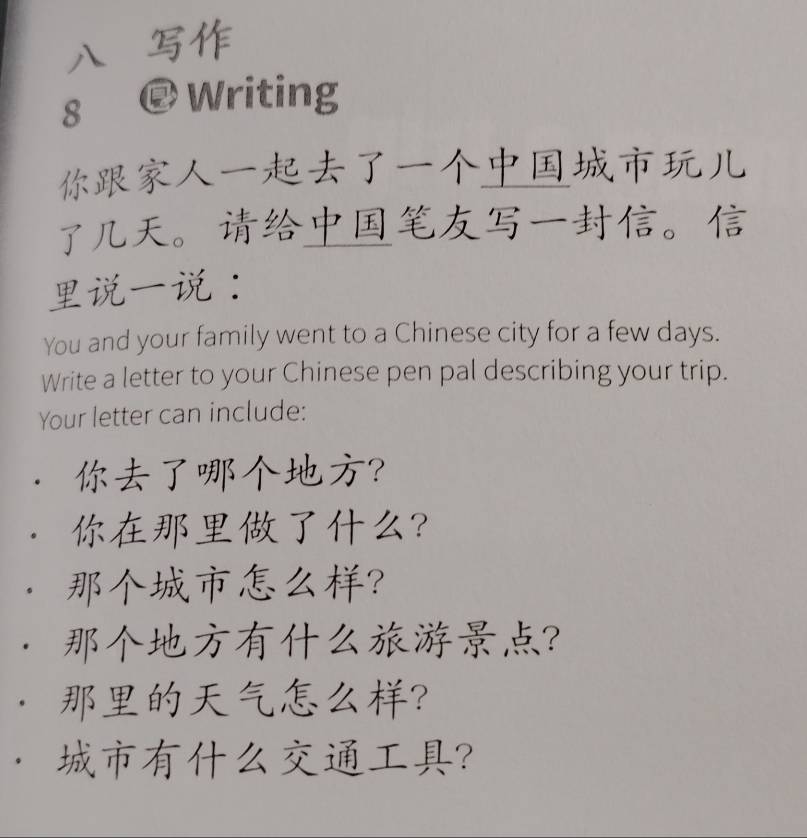 八 写作
8 Writing
你跟家人一起去了一个中国城市玩儿
了几天。请给中国笔友写一封信。信
里说一说：
You and your family went to a Chinese city for a few days.
Write a letter to your Chinese pen pal describing your trip.
Your letter can include:
· 你去了哪个地方?
· 你在那里做了什么?
· 那个城市怎么样?
· 那个地方有什么旅游景点?
· 那里的天气怎么样?
· 城市有什么交通工具?